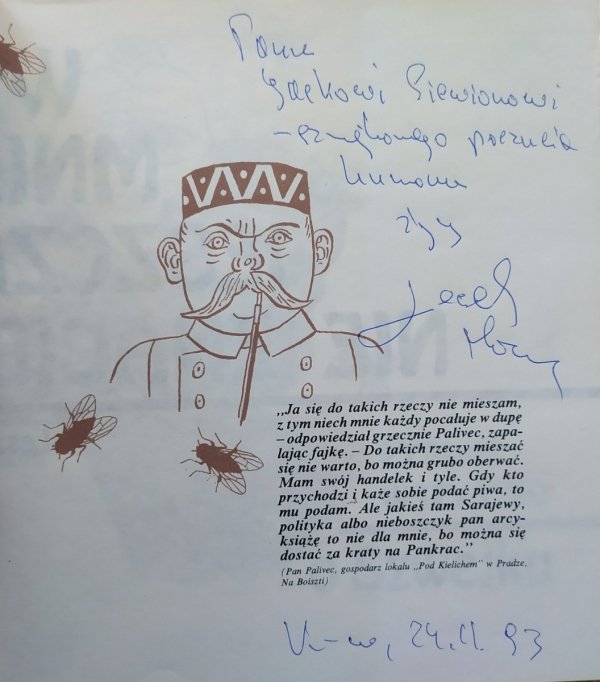 Panu
Jackowi Siewionowi
poczucia
humoru
życzy
Jacek
„Ja się do takich rzeczy nie mieszam,
z tym niech mnie każdy pocałuje w dupę
– odpowiedział grzecznie Palivec, zapa-
lając fajkę. – Do takich rzeczy mieszać
się nie warto, bo można grubo oberwać.
Mam swój handelek i tyle. Gdy kto
przychodzi i każe sobie podać piwa, to
mu podam. Ale jakieś tam Sarajewy,
polityka albo nieboszczyk pan arcy-
książę to nie dla mnie, bo można się
dostać za kraty na Pankrac.”
(Pan Palivec, gospodarz lokalu „Pod Kielichem” w Pradze,
Na Boiszti)
W-wa, 24.11.93